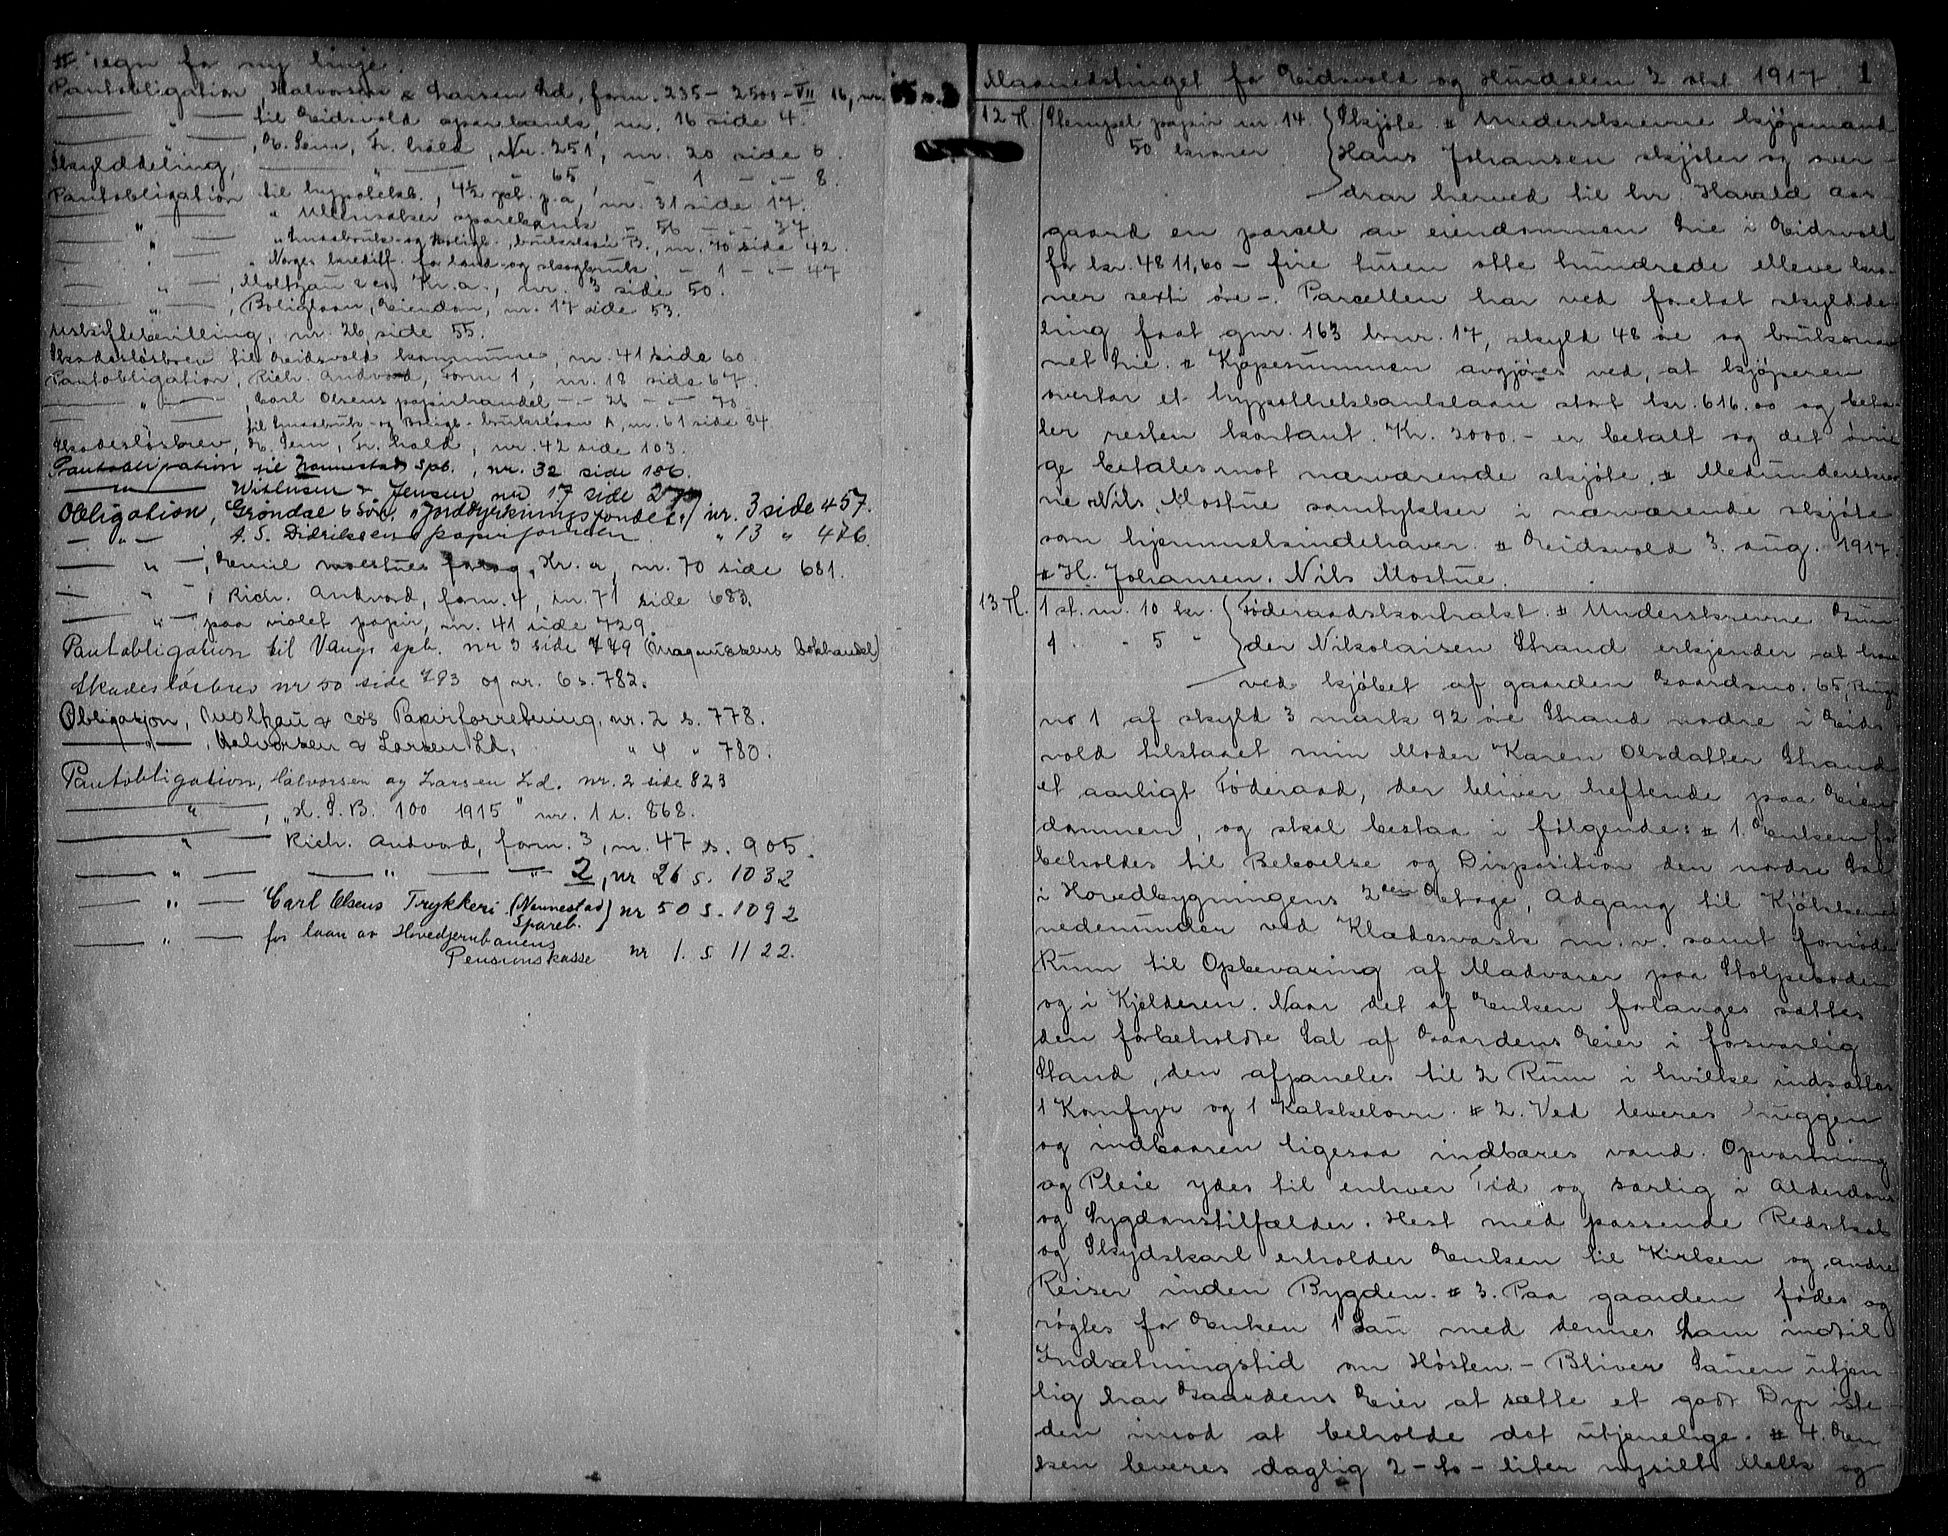 # Tegn for ny linje.
Pantobligation, Halvorsen & Larsen Ld, form. 235 - 2500 - VII 16, nr. 15 s. 3
— " — til Eidsvold sparebank, nr. 16 side 4.
— " —, E. Sem, Fr.hald, Nr. 251, nr. 20 side 6.
Skylddeling, — " — 65, - 1 - " - 8.
Pantobligation til hypotekb., 4½ pct. p.a, nr. 31 side 17.
— " — " Ullensaker sparebank - 56 - " - 37.
— " — " Smaabruk- og Boligb., bruksslaan B., nr. 70 side 42.
— " — " Norges kreditf. for land- og skogbruk, - 1 - " - 47
— " —, Moltzau & co, Kr.a., nr. 3 side 50.
— " —, Boliglaan, Eiendom, nr. 17 side 53.
Utskiftebevilling, nr. 26 side 55.
Skadesløsbrev til Eidsvold kommune, nr. 41 side 60.
Pantobligation, Rich. Andvord, Form 1, nr. 18 side 67.
— " —, Carl Olsens papirhandel - " - 26 - " - 78.
til Smaabruk- og Boligb. - brukslaan A, nr. 61 side 84.
Skadesløsbrev, E. Sem, Fr.hald, nr. 42 side 103.
Pantobligation til Nannestad Spb., nr. 32 side 186.
— " — Wilhusen & Jensen nr 17 side
Obligation, Grøndal & Søn, "Jorddyrkningsfondet", nr. 3 side 457.
— " — A. S. Didriksens papirforretn. " 13 " 476.
— " —, Emil Moestues forlag, Kr. a, nr. 70 side 681.
— " —, Rich. Andvord, form. 4, nr. 71 side 683.
— " — paa violet papir, nr. 41 side 729.
Pantobligation til Vangs spb. nr 3 side 749 (Magnussens bokhandel)
Skadesløsbrev nr 50 side 793 og nr. 6 s. 782.
Obligasjon, Moltzau & cos Papirforretning, nr. 2 s. 778.
— " —, Halvorsen & Larsen Ld. " 4 " 780.
Pantobligation, Halvorsen og Larsen Ld. nr. 2 side 823
— " —, "H. S. B. 100 1915" nr. 1 s. 868.
— " — Rich. Andvord, form. 3, nr. 47 s. 905.
— " — — " — — " — 2, nr 26 s. 1032
— " — Carl Olsens Trykkeri (Nannestad Spareb.) nr 50 s. 1092
— " — for laan av Hovedjernbanens
Pensionskasse nr 1. s. 1122.
Maanedstinget for Eidsvold og Hurdalen 2 okt 1917. 1
12 H. Stempel papir nr. 14 Skjøte # Underskrevne kjøpmand
50 kroner Hans Johansen skjøter og over-
drar herved til hr. Harald Aas-
gaard en parsel av eiendommen Lie i Eidsvoll
for kr. 4811,60 - fire tusen otte hundrede elleve kro-
ner sexti øre -. Parcellen har ved foretat skyldde-
ling faat gnr. 163 bnr. 17, skyld 48 øre og bruksnav-
net Lie. # Kjøpesummen avgjøres ved, at kjøperen
overtar et hypothekbanklaan stort kr. 616.00 og beta-
ler resten kontant. Kr. 2000.- er betalt og det øvri-
ge betales mot nærværende skjøte. # Medunderskrev-
ne Nils Mostue samtykker i nærværende skjøte
som hjemmelsindehaver. # Eidsvold 3. aug. 1917.
# H. Johansen. Nils Mostue.
13 H. 1 st. m. 10 kr. Føderaadskontrakt. # Underskrevne Gun-
1 " - 5 " der Nikolaisen Strand erkjender at have
ved kjøbet af gaarden Gaardsno. 65, Brugs
no 1 af skyld 3 mark 92 øre Strand nordre i Eids-
vold tilstaaet min Moder Karen Olsdatter Strand
et aarligt Føderaad, der bliver heftende paa Eien-
dommen, og skal bestaa i følgende: # 1. Enken for-
beholdes til Beboelse og Disposition den nordre Sal
i Hovedbygningens 2den Etage, Adgang til Kjøkkenet
nedenunder ved Klædesvask m. v. samt fornøden
Rum til Opbevaring af Madvarer paa Stolpeboden
og i Kjelderen. Naar det af Enken forlanges sættes
den forbeholdte Sal af Gaardens Eier i forsvarlig
Stand, den afpaneles til 2 Rum i hvilke indsættes
1 Komfyr og 1 Kakkelovn. # 2. Ved leveres huggen
og indbaaren ligesaa indbæres vand. Opvartning
og Pleie ydes til enhver Tid og særlig i Alderdoms
og Sygdomstilfælder. Hest med passende Redskab
og Skydskarl erholder Enken til Kirken og andre
Reiser inden Bygden. # 3. Paa gaarden fødes og
røgtes for Enken 1 Sau med dennes Lam indtil
Indsætningstid om Høsten. - Bliver Sauen utjen-
lig har Gaardens Eier at sætte et godt Dyr iste-
den imod at beholde det utjenelige. # 4. En-
ken leveres daglig 2 - to - liter nysilt Melk og